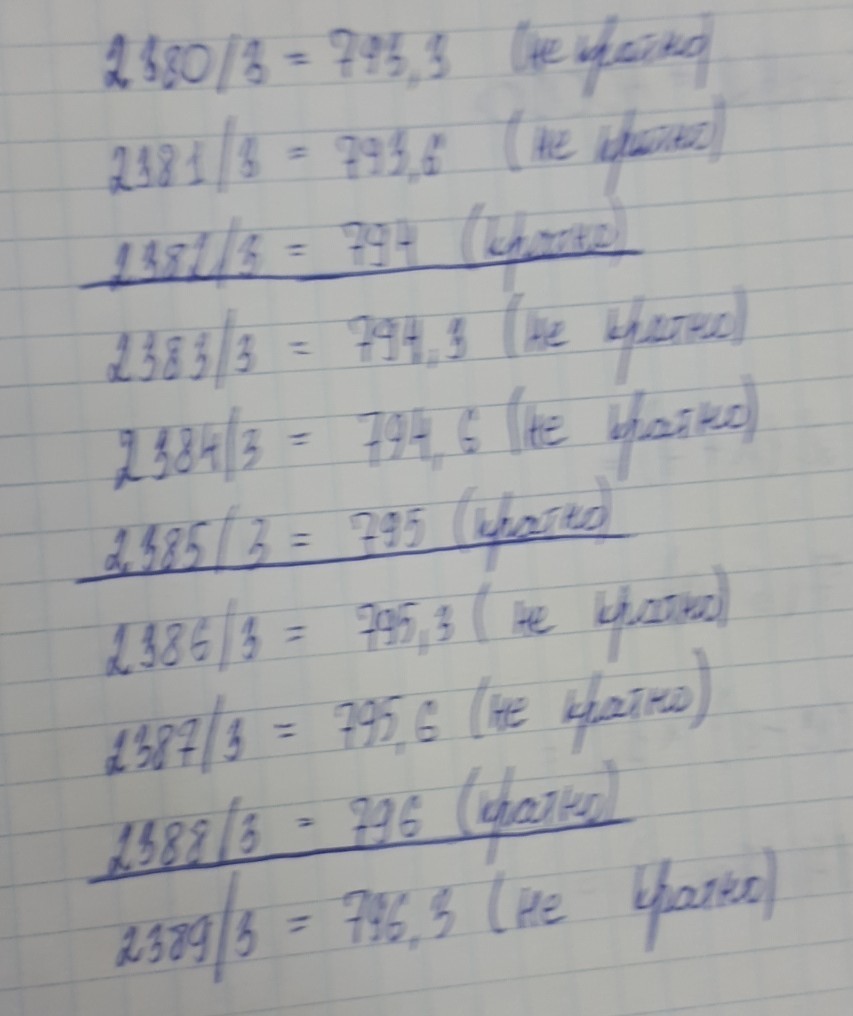 2380/3 = 793,3 (не кратно)
2381/3 = 793,6 (не кратно)
2382/3 = 794 (кратно)
2383/3 = 794,3 (не кратно)
2384/3 = 794,6 (не кратно)
2385/3 = 795 (кратно)
2386/3 = 795,3 (не кратно)
2387/3 = 795,6 (не кратно)
2388/3 = 796 (кратно)
2389/3 = 796,3 (не кратно)